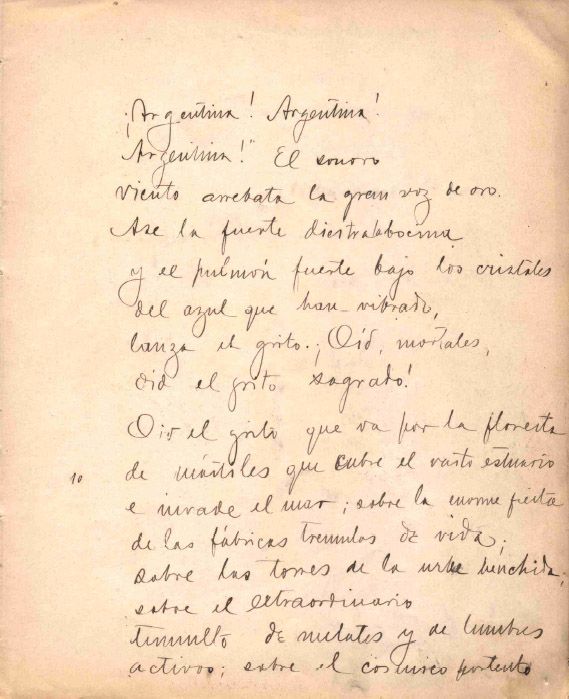 ¡Argentina! Argentina!
Argentina!" El sonoro
viento arrebata la gran voz de oro.
Ase la fuerte diestra la bocina
y el pulmón fuerte bajo los cristales
del azul que han vibrado,
lanza el grito: ¡Oíd, mortales,
oíd el grito sagrado!
Oíd el grito que va por la floresta
de mástiles que cubre el vasto estuario
10
e invade el mar; sobre la enorme fiesta
de las fábricas trémulas de vida;
sobre las torres de la urbe henchida;
sobre el extraordinario
tumulto de metales y de lumbres
activos; sobre el cósmico portento